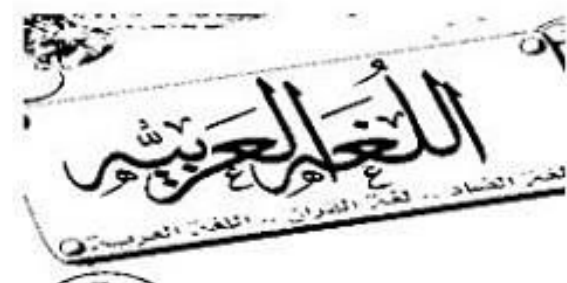 اللغة العربية
لغة الضاد .. لغة القرآن .. اللغة العربية